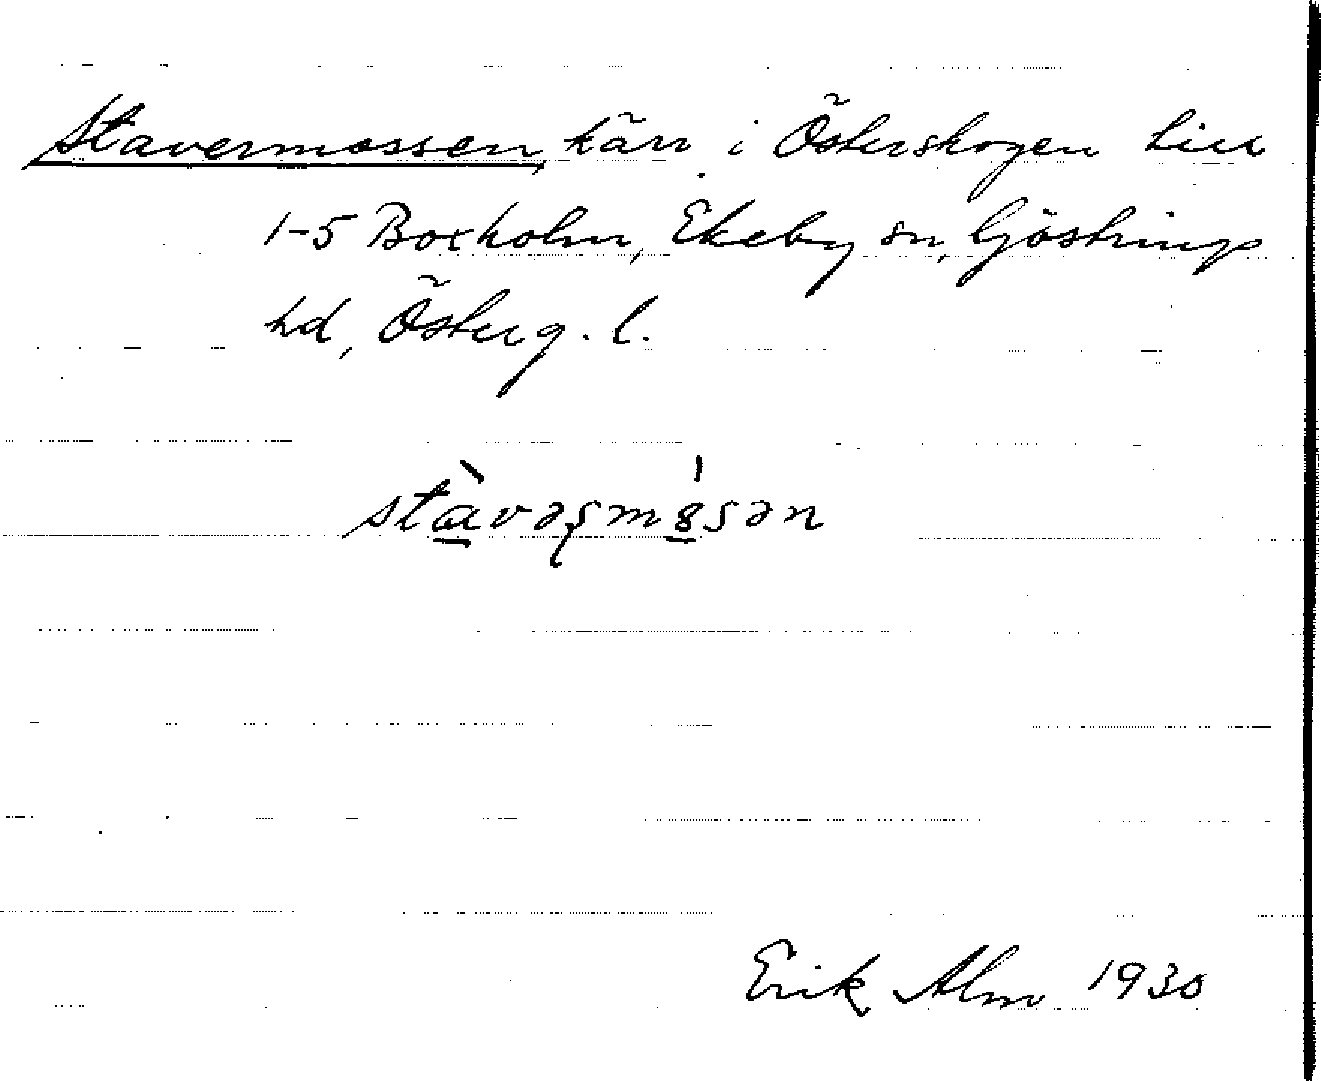 Stavermossen, kärr i Österskogen till
1-5 Boxholm, Ekeby sn, Göstrings
hd, Österg. l.
stàvəʂmósən
Erik Alm 1930